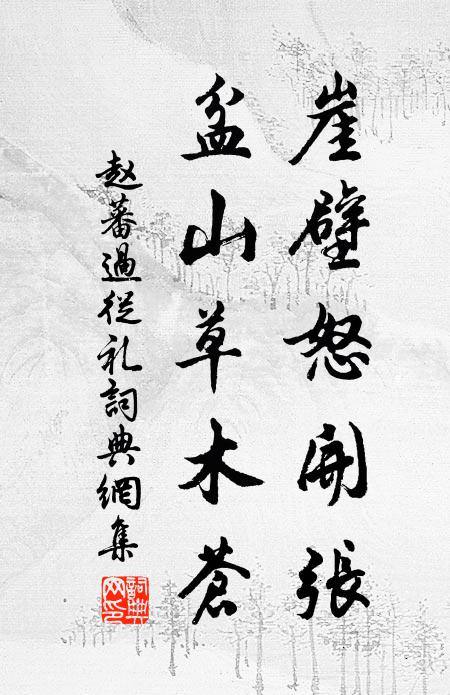 崖壁怒開張
盆山草木蒼
赵蕃過從礼詞典網集
詞典网印